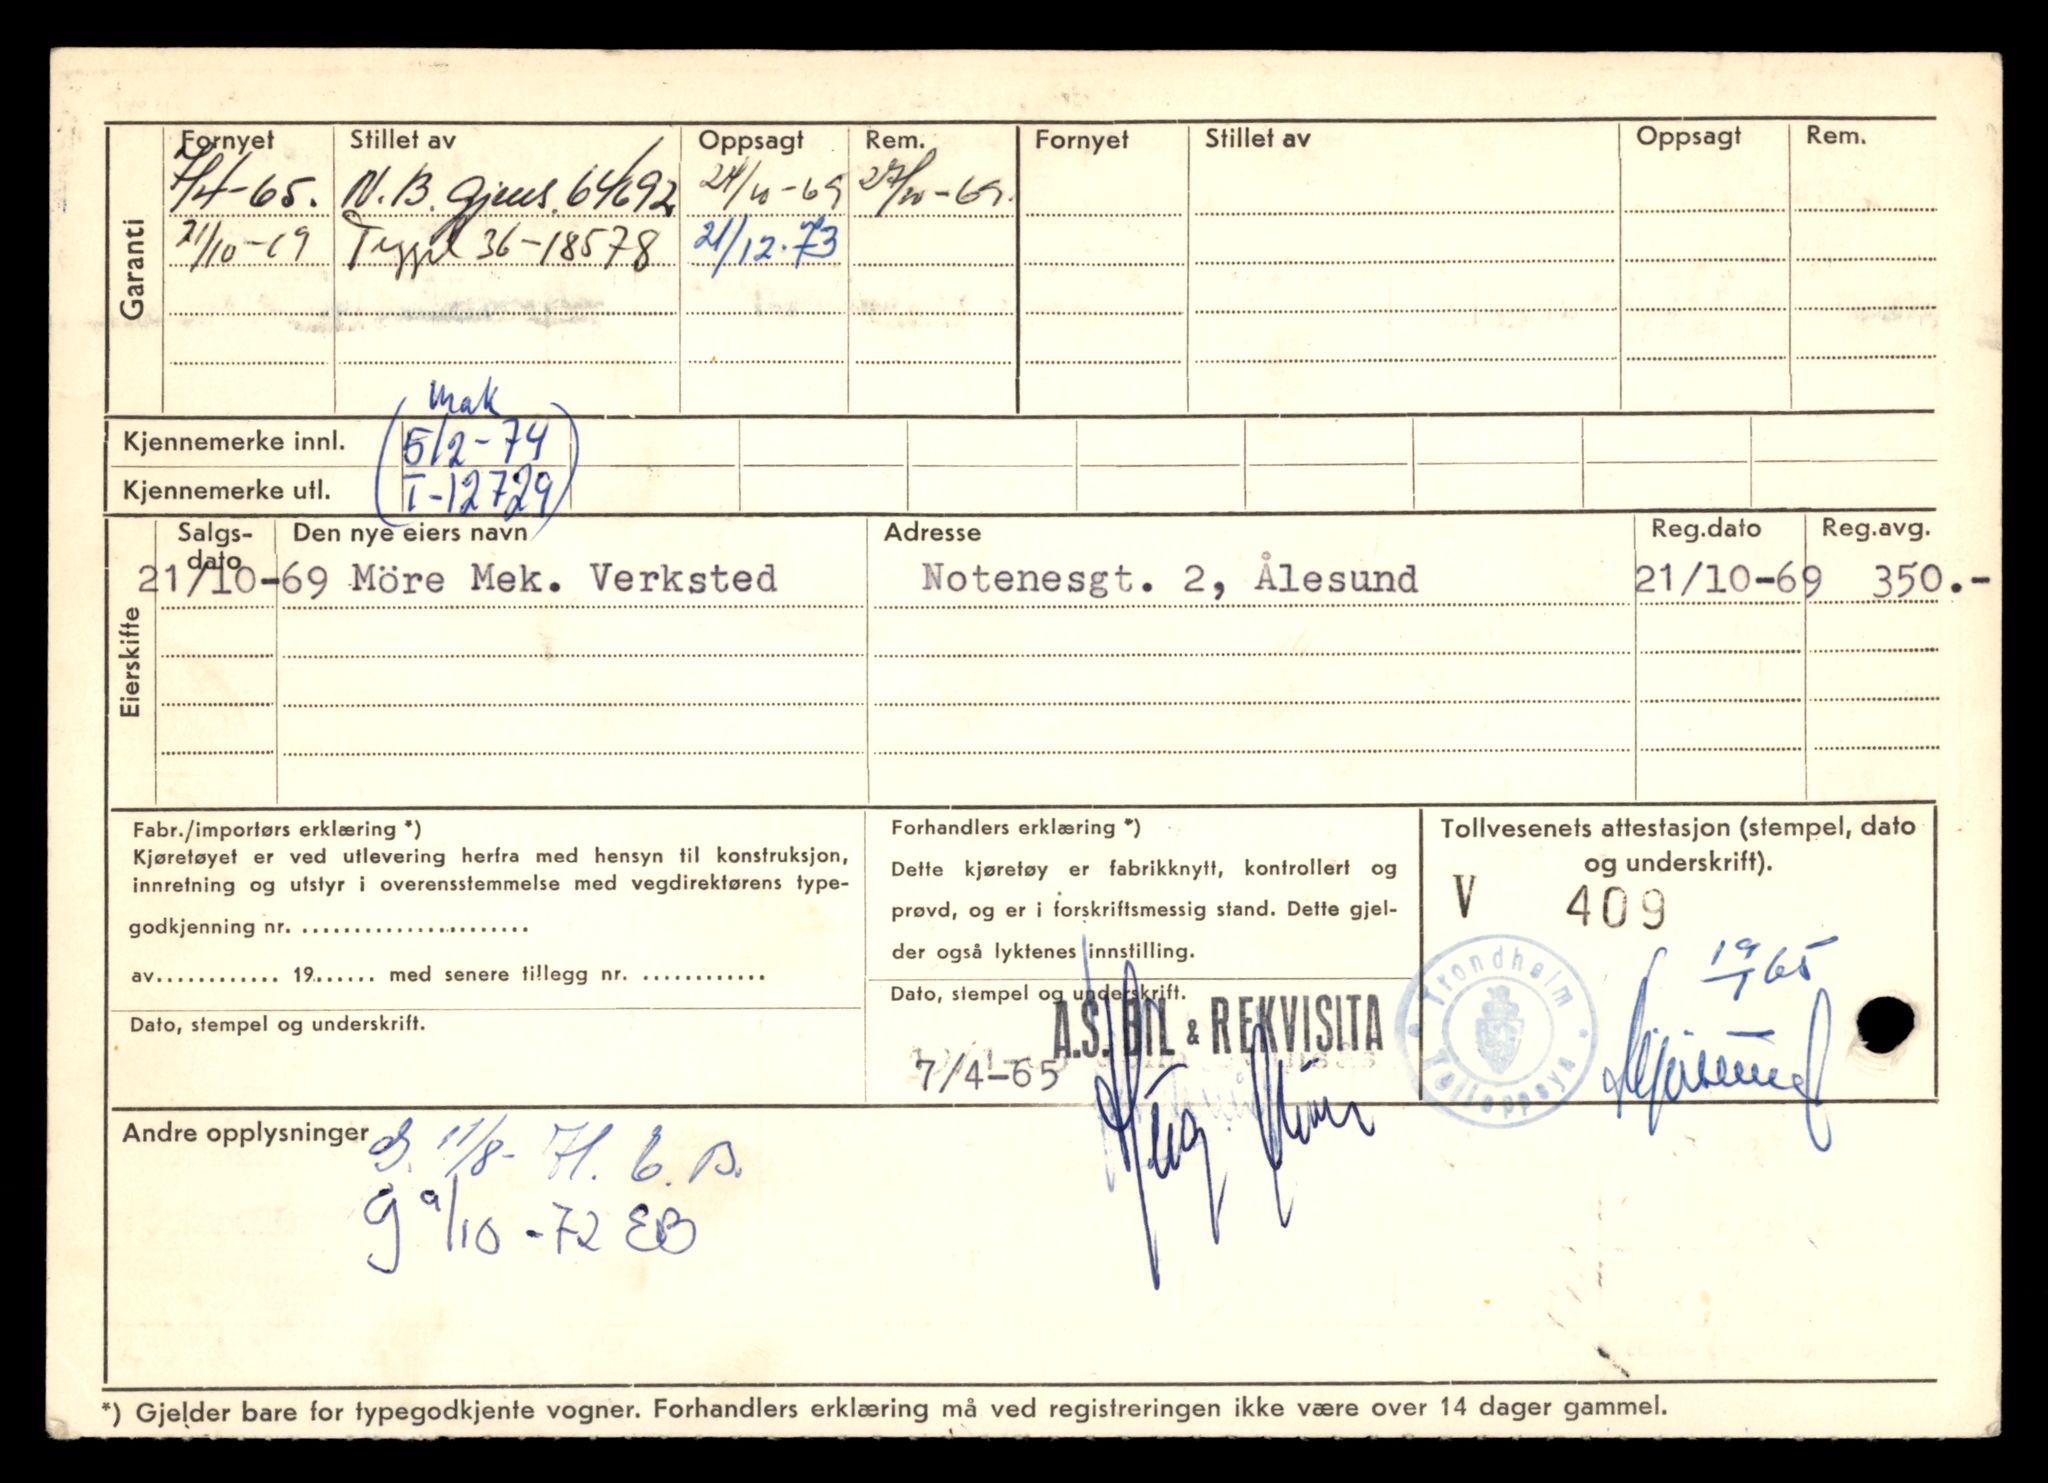 Garanti
Fornyet Stillet av Oppsagt Rem. Fornyet Stillet av Oppsagt Rem.
7/4-65. N.B. Gjens. 64692 24/10-69 27/10-69.
21/10-69 36-18578 21/12-73
mak
Kjennemerke innl. 5/2-74
Kjennemerke utl. T-12729
Eierskifte
Salgs-dato Den nye eiers navn Adresse Reg.dato Reg.avg.
21/10-69 Möre Mek. Verksted Notenesgt. 2, Ålesund 21/10-69 350.-
Fabr./importørs erklæring *)
Kjøretøyet er ved utlevering herfra med hensyn til konstruksjon,
innretning og utstyr i overensstemmelse med vegdirektørens type-
godkjenning nr. ......................
av............ 19...... med senere tillegg nr. ............
Dato, stempel og underskrift.
Forhandlers erklæring *)
Dette kjøretøy er fabrikknytt, kontrollert og
prøvd, og er i forskriftsmessig stand. Dette gjel-
der også lyktenes innstilling.
Dato, stempel og underskrift.
A.S. BIL & REKVISITA
7/4-65
Tollvesenets attestasjon (stempel, dato
og underskrift).
V 409
19/1 65
Trondheim Tolloppsyn
Andre opplysninger
G. 11/8-71. E.B.
G 9/10-72 EB
*) Gjelder bare for typegodkjente vogner. Forhandlers erklæring må ved registreringen ikke være over 14 dager gammel.